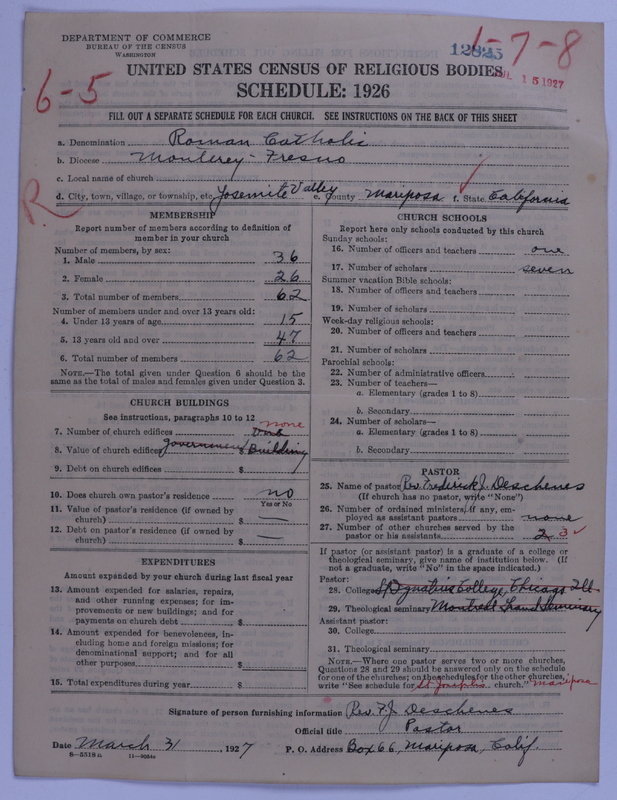 DEPARTMENT OF COMMERCE
BUREAU OF THE CENSUS
WASHINGTON
1-7-8
6-5
15 1927
UNITED STATES CENSUS OF RELIGIOUS BODIES
SCHEDULE: 1926
FILL OUT A SEPARATE SCHEDULE FOR EACH CHURCH. SEE INSTRUCTIONS ON THE BACK OF THIS SHEET
a. Denomination Roman Catholic
b. Diocese Monterey-Fresno
c. Local name of church
d. City, town, village, or township, etc. Yosemite Valley e. County Mariposa f. State California
R
MEMBERSHIP
Report number of members according to definition of
member in your church
Number of members, by sex:
1. Male 36
2. Female 26
3. Total number of members 62
Number of members under and over 13 years old:
4. Under 13 years of age 15
5. 13 years old and over 47
6. Total number of members 62
NOTE.—The total given under Question 6 should be
same as the total of males and females given under Question 3.
CHURCH BUILDINGS
See instructions, paragraphs 10 to 12
none
7. Number of church edifices
8. Value of church edifices Government $ Building
9. Debt on church edifices $
10. Does church own pastor's residence no
Yes or No
11. Value of pastor's residence (if owned by
church) $ —
12. Debt on pastor's residence (if owned by
church) $ —
EXPENDITURES
Amount expended by your church during last fiscal year
13. Amount expended for salaries, repairs,
and other running expenses; for im-
provements or new buildings; and for
payments on church debt $
14. Amount expended for benevolences, in-
cluding home and foreign missions; for
denominational support; and for all
other purposes $
15. Total expenditures during year $
CHURCH SCHOOLS
Report here only schools conducted by this church
Sunday schools:
16. Number of officers and teachers one
17. Number of scholars seven
Summer vacation Bible schools:
18. Number of officers and teachers
19. Number of scholars
Week-day religious schools:
20. Number of officers and teachers
21. Number of scholars
Parochial schools:
22. Number of administrative officers
23. Number of teachers—
a. Elementary (grades 1 to 8)
b. Secondary
24. Number of scholars—
a. Elementary (grades 1 to 8)
b. Secondary
PASTOR
25. Name of pastor Rev. Frederick J. Deschenes
(If church has no pastor, write "None")
26. Number of ordained ministers, if any, em-
ployed as assistant pastors none
27. Number of other churches served by the
pastor or his assistants 2 3
If pastor (or assistant pastor) is a graduate of a college or
theological seminary, give name of institution below. (If
not a graduate, write "No" in the space indicated.)
Pastor:
28. College St Ignatius College, Chicago Ill
29. Theological seminary Montreal Grand Seminary
Assistant pastor:
30. College
31. Theological seminary
NOTE.—Where one pastor serves two or more churches,
Questions 28 and 29 should be answered only on the schedule
for one of the churches; on the schedules for the other churches,
write "See schedule for St. Joseph's church." Mariposa
Signature of person furnishing information Rev. F. J. Deschenes
Official title Pastor
Date March 31, 1927 P. O. Address Box 66, Mariposa, Calif.